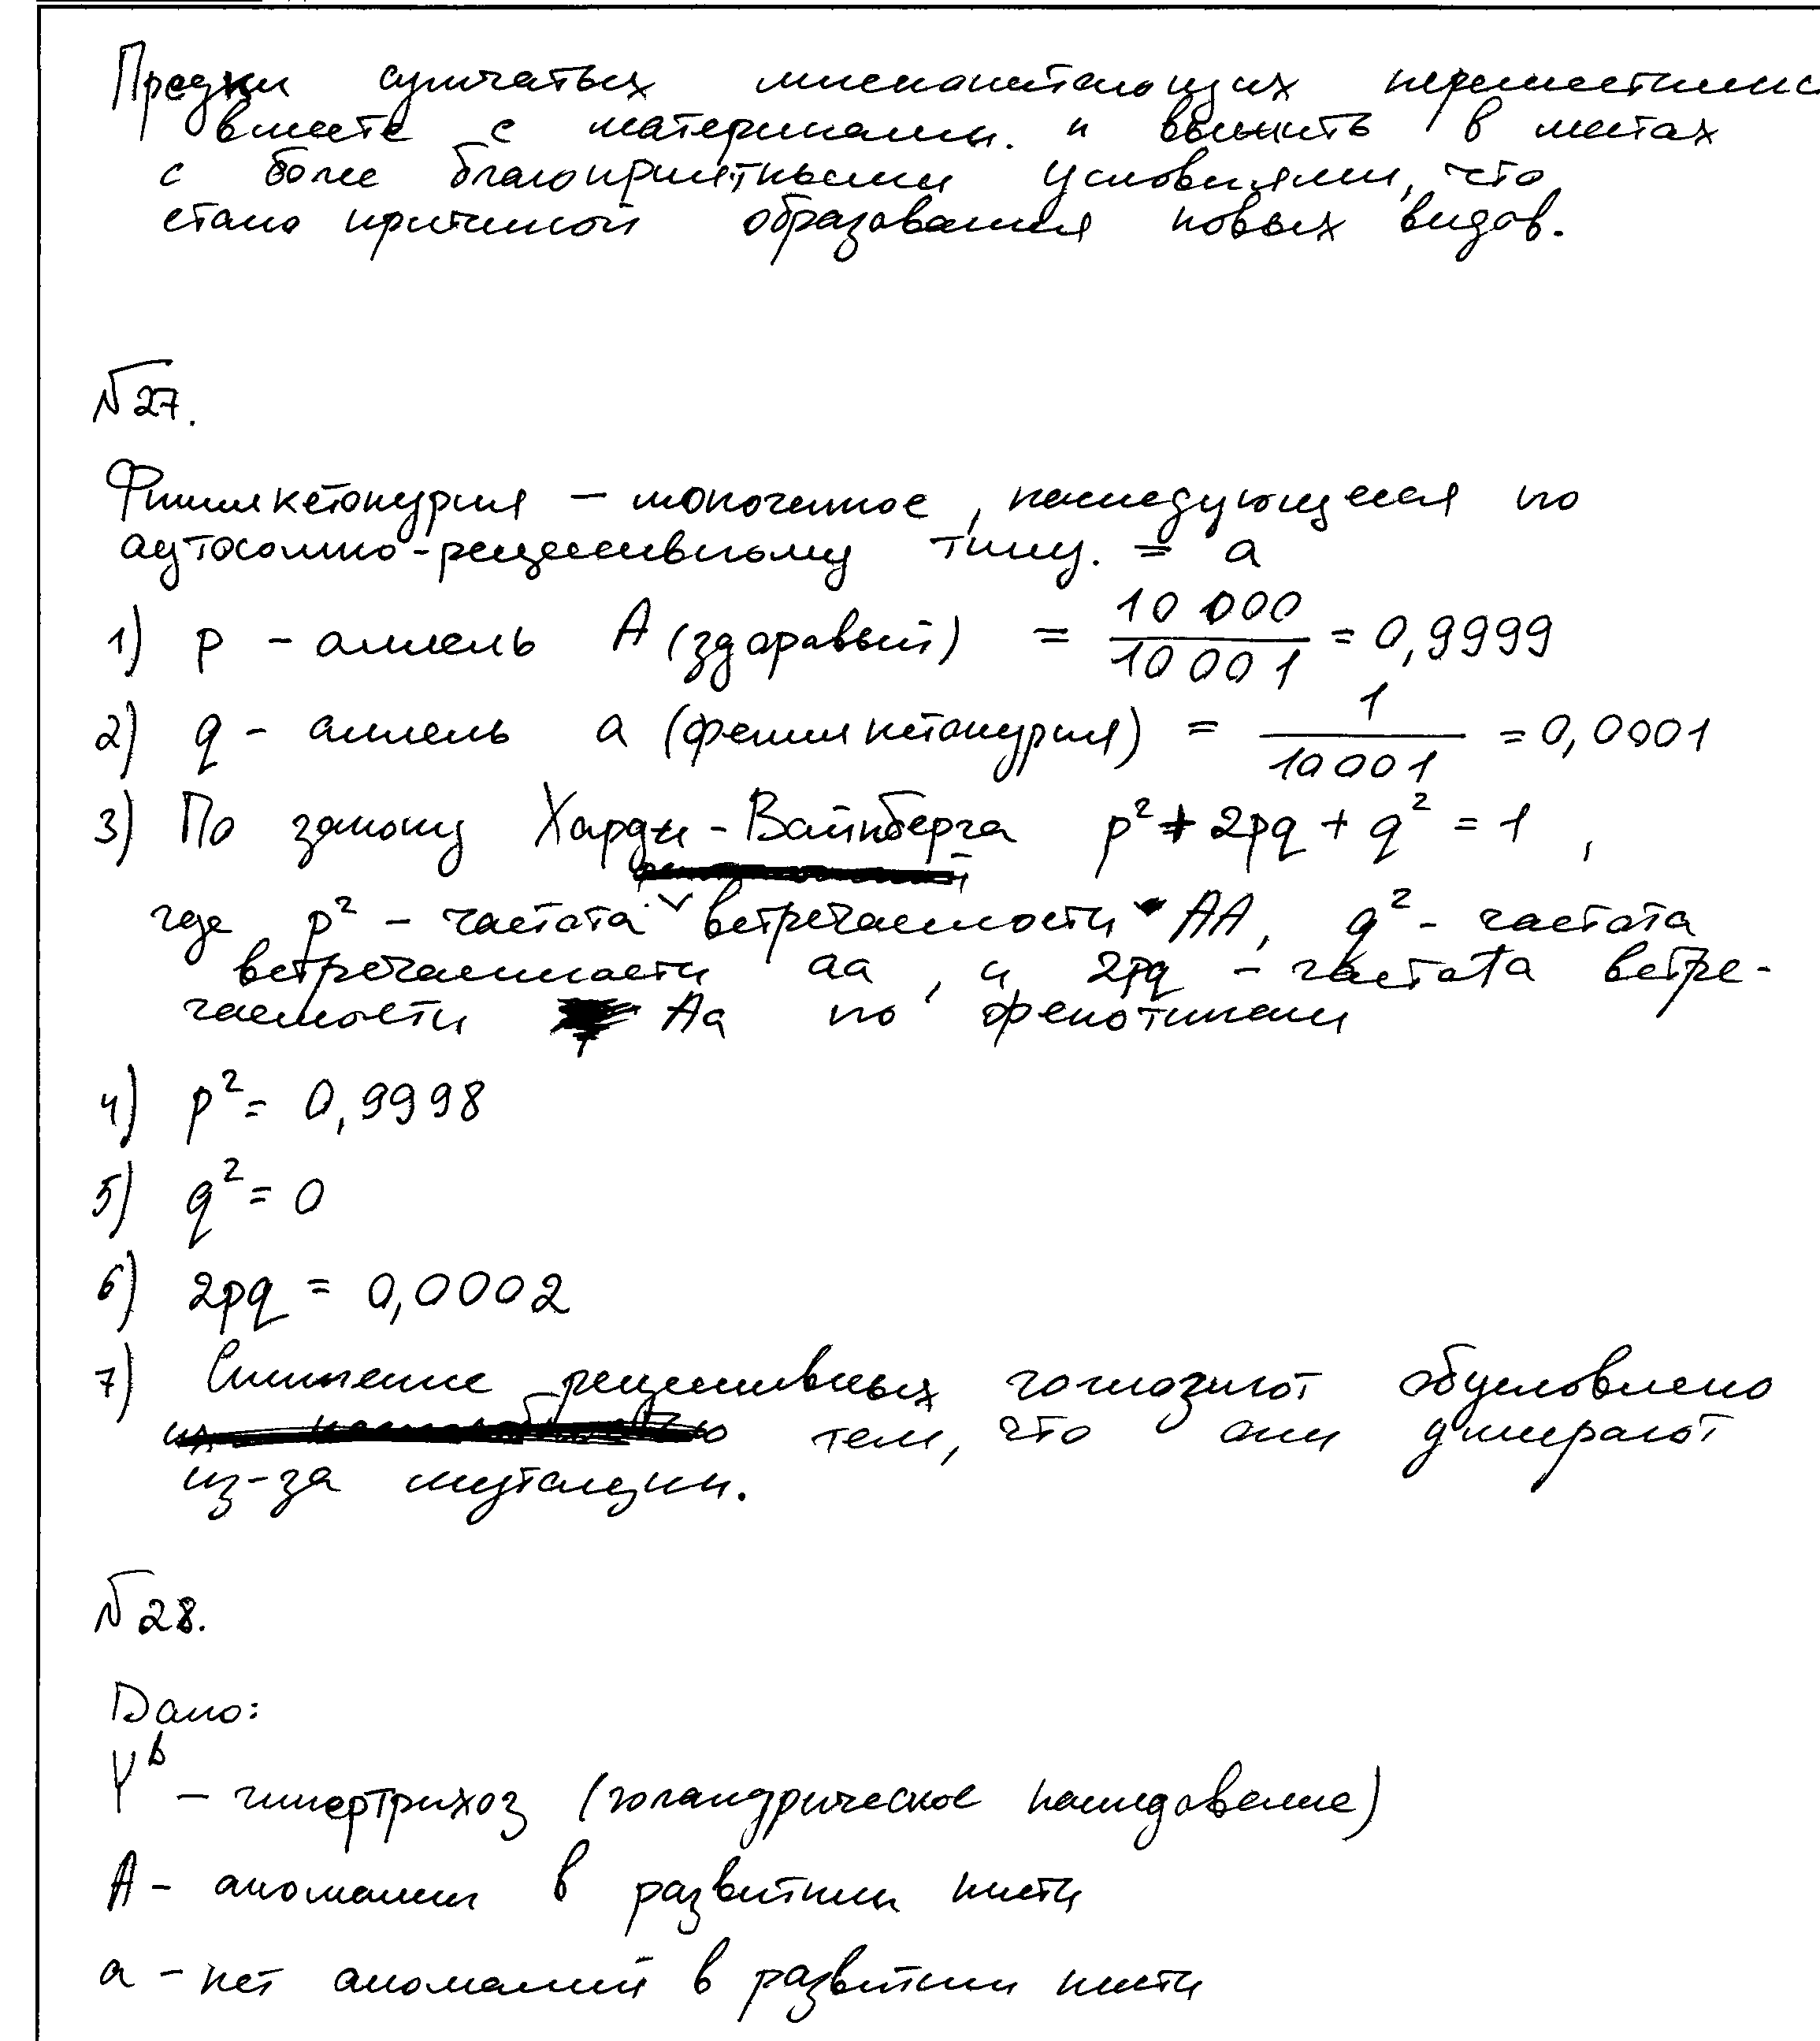 Предки сумчатых млекопитающих переместились
вместе с материками. и выжить в местах
с более благоприятными условиями, что
стало причиной образования новых видов.
№27.
Финилкетонурия – моногенное, наследующееся по
аутосомно-рецессивному типу. = а
1) p – аллель А (здоровый) = 10 000 / 10 001 = 0,9999
2) q – аллель а (фенилкетонурия) = 1 / 10 001 = 0,0001
3) По закону Харди – Вайнберга p² + 2pq + q² = 1 ,
где p² – частота встречаемости АА, q² – частота
встречаемости аа, и 2pq – частота встре-
чаемости Аа по фенотипам
4) p² = 0,9998
5) q² = 0
6) 2pq = 0,0002
7) Снижение рецессивных гомозигот обусловлено
тем, что они умирают
из-за мутации.
№28.
Дано:
Yᵇ – гипертрихоз (голандрическое наследование)
А – аномалии в развитии кисти
а – нет аномалий в развитии кисти